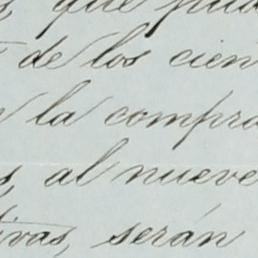 que pud
de los cien
la compra
al nueve
ivas, serán